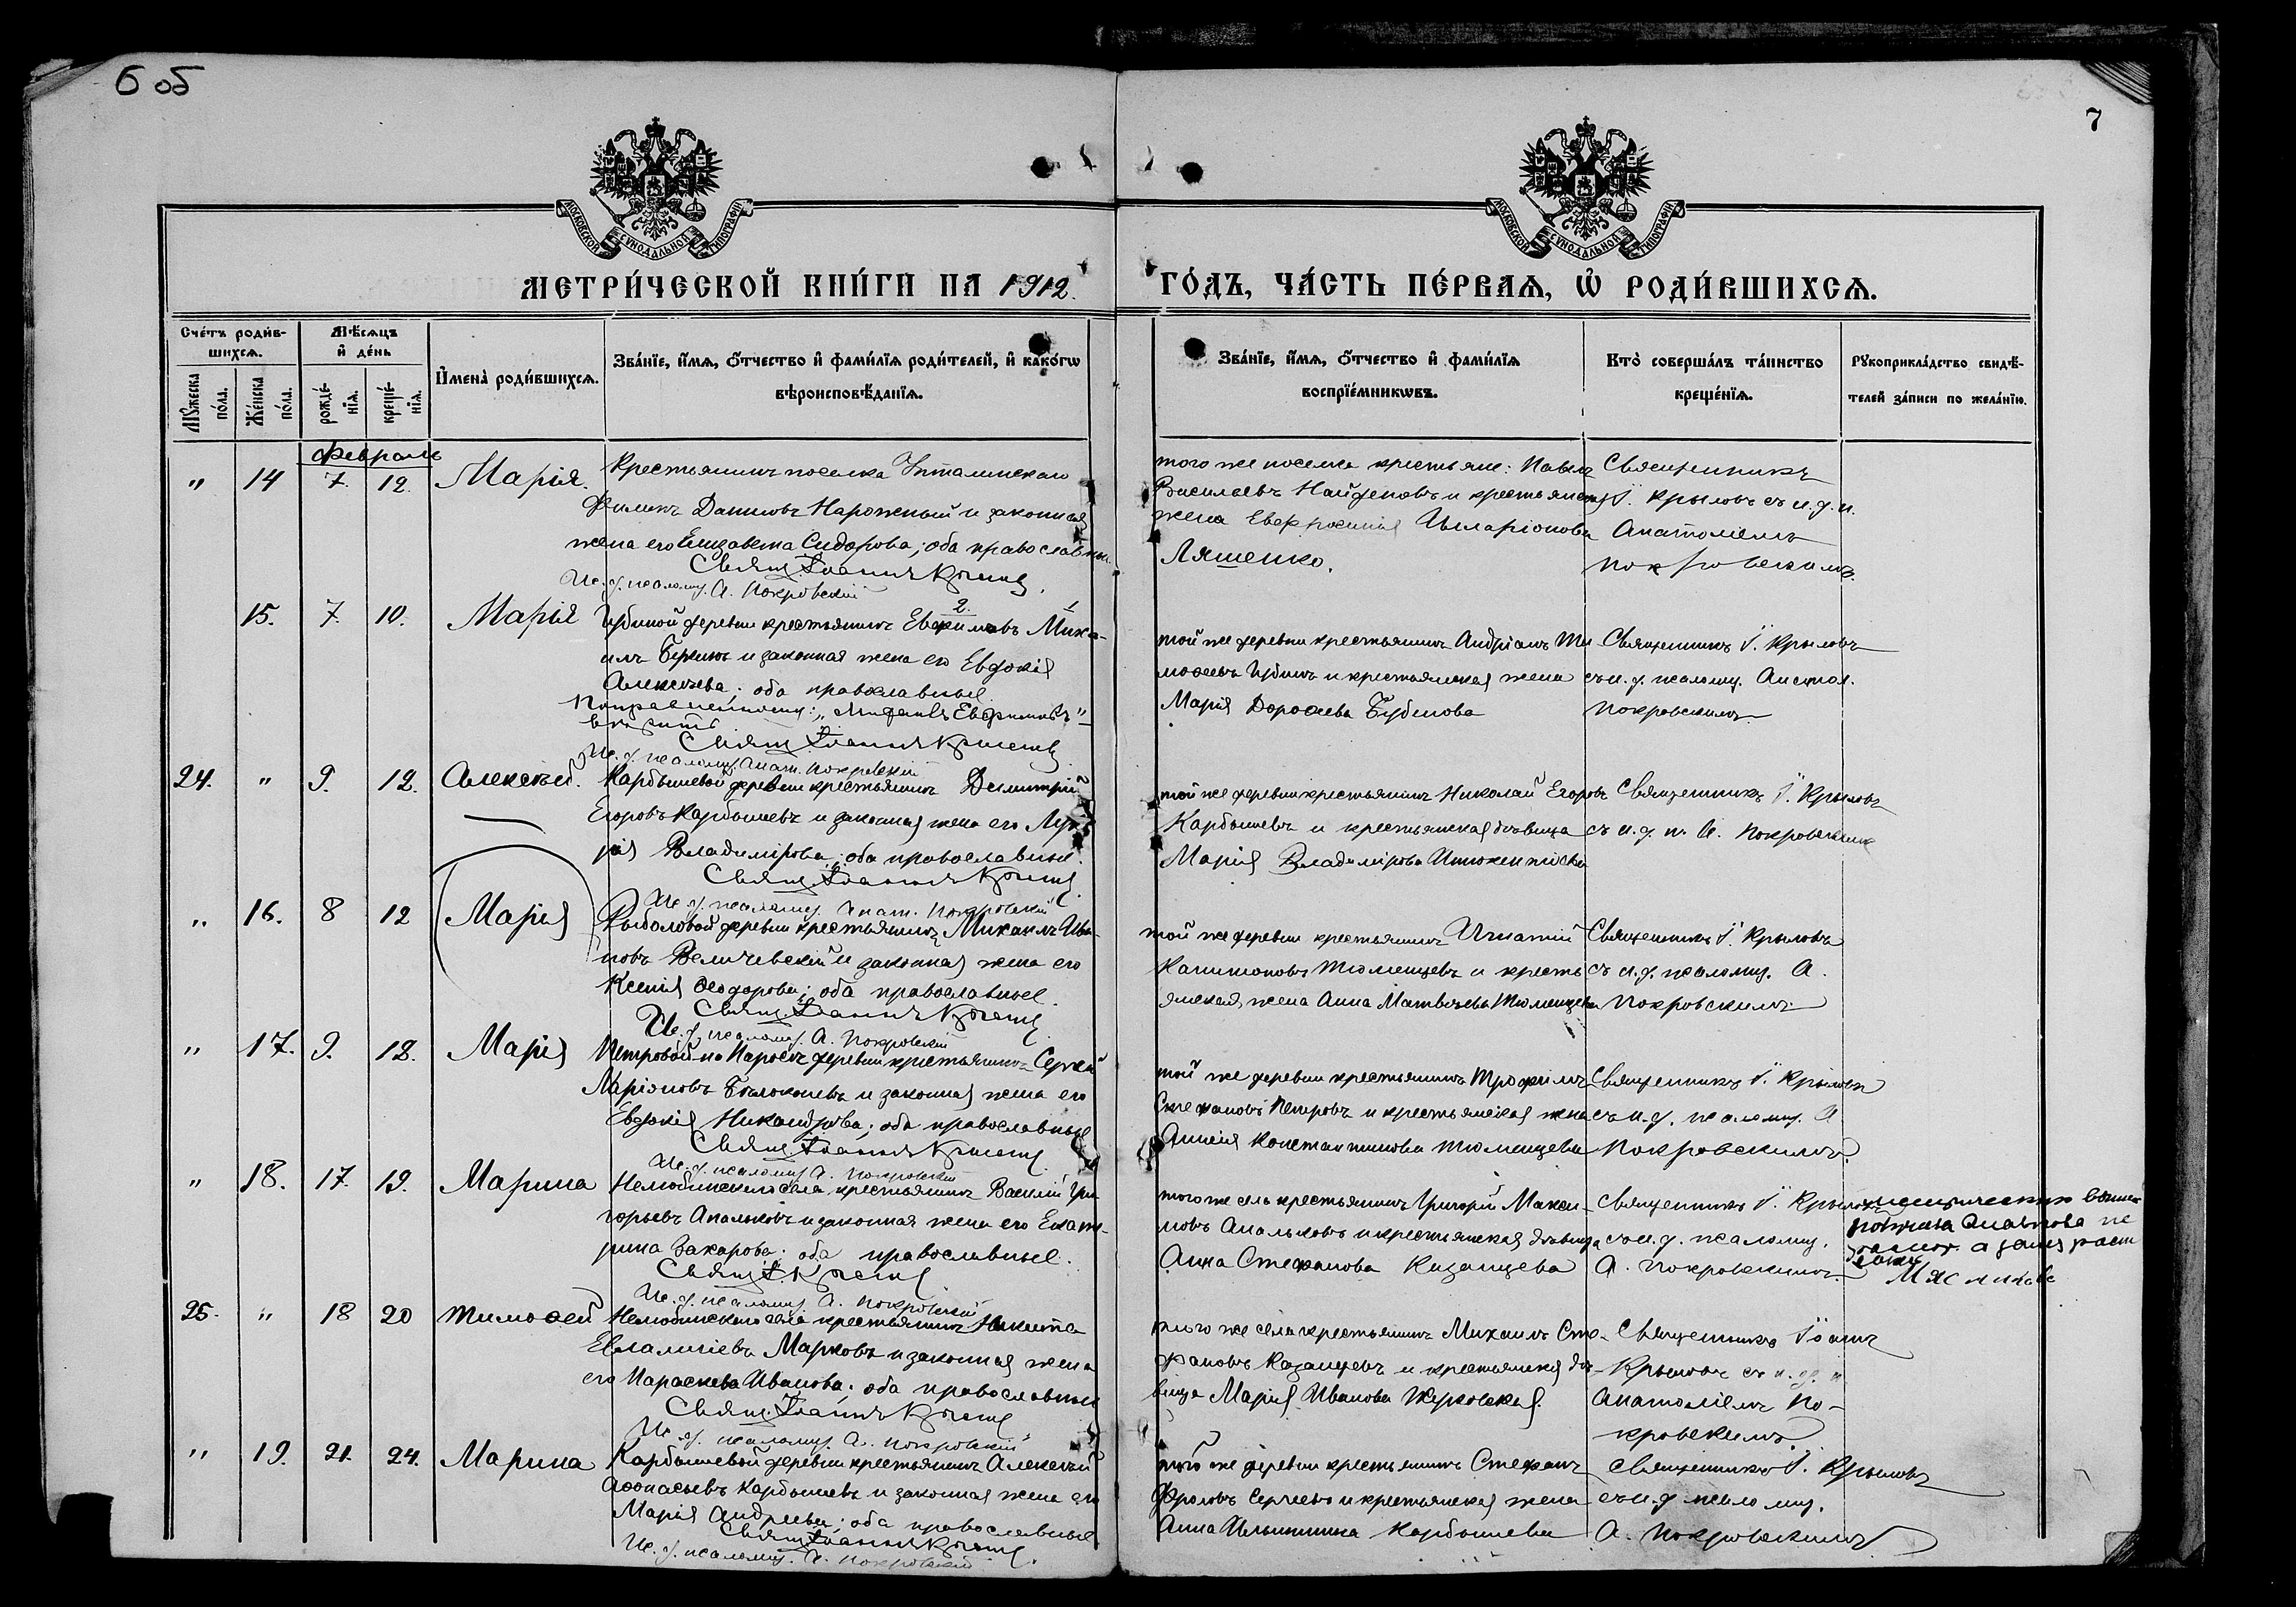 6 об
7
МОСКОВСКОЙ СѴНОДАЛЬНОЙ ТИПОГРАФІИ
МОСКОВСКОЙ СѴНОДАЛЬНОЙ ТИПОГРАФІИ
МЕТРИ́ЧЕСКОЙ КНИ́ГИ НА 1912.
ГО́ДЪ, ЧА́СТЬ ПЕ́РВАѦ, Ѡ҆ РОДИ́ВШИХСѦ.
Сче́тъ роди́в-
шихсѧ.
Мѣ́сѧцъ
и҆ де́нь
Мꙋ́жеска
по́ла.
Же́нска
по́ла.
рожде́-
нїѧ.
креще́-
нїѧ.
И҆мена̀ роди́вшихсѧ.
Зва́нїе, и҆́мѧ, ѻ҆́тчество и҆ фами́лїѧ роди́телей, и҆ како́гѡ
вѣроисповѣ́данїѧ.
Зва́нїе, и҆́мѧ, ѻ҆́тчество и҆ фами́лїѧ
воспрїе́мникѡвъ.
Кто̀ соверша́лъ та́инство
креще́нїѧ.
Рꙋкоприкла́дство свидѣ́-
телей за́писи по жела́нїю.
Февраль
" 14 7. 12. Марія.
Крестьянинъ поселка
Филипъ Даниловъ Нарожный и законная
жена его Елизавета Сидорова; оба православные.
Свящ. Іоаннъ Крыловъ
Ис. д. псаломщ. А. Покровскій
того же поселка крестьяне: Павелъ
Васильевъ Найденовъ и крестьянская
жена Евфросинія Илларіонова
Ляшенко.
Священникъ
І. Крыловъ съ и. д. п.
Анатоліемъ
Покровскимъ.
15. 7. 10. Марія
Губиной деревни крестьянинъ Евфимовъ Миха-
илъ и законная жена его Евдокія
Алексѣева; оба православные
Поправленному: „Михаилъ Евфимовъ"
вѣрить
Свящ. Іоаннъ Крыловъ
Ис. д. псаломщ. Анат. Покровскій
той же деревни крестьянинъ Андріанъ Ти
моѳеевъ Губинъ и крестьянская жена
Марія Дороѳеева Бубенова
Священникъ І. Крыловъ
съ и. д. псаломщ. Анатол.
Покровскимъ
24. " 9. 12. Алексѣй.
Карбышевой деревни крестьянинъ Димитрій
Егоровъ Карбышевъ и законная жена его Лук-
рія Владимірова; оба православные.
Свящ. Іоаннъ Крыловъ
Ис. д. псаломщ. Анат. Покровскій
той же деревни крестьянинъ Николай Егоровъ
Карбышевъ и крестьянская дѣвица
Марія Владимірова
Священникъ І. Крыловъ
съ и. д. п. А. Покровскимъ
" 16. 8 12 Марія
Рыбаловой деревни крестьянинъ Михаилъ Ива-
новъ Величевскій и законная жена его
Ксенія Ѳеодорова; оба православные.
Свящ. Іоаннъ Крыловъ
Ис. д. псаломщ. А. Покровскій
той же деревни крестьянинъ Игнатій
Капитоновъ Тюменцевъ и кресть
янская жена Анна Матвѣева Тюменцева
Священникъ І. Крыловъ
съ и. д. псаломщ. А.
Покровскимъ
" 17. 9. 12. Марія
Петровой на деревни крестьянинъ Сергѣй
Ларіоновъ Бѣлоконевъ и законная жена его
Евдокія Никандрова; оба православные
Свящ. Іоаннъ Крыловъ
Ис. д. псаломщ. А. Покровскій
той же деревни крестьянинъ Трофимъ
Стефановъ Петровъ и крестьянская жена
Аннсія Константинова Тюменцева
Священникъ І. Крыловъ
съ и. д. псаломщ. А
Покровскимъ.
" 18. 17. 19. Марина
Нелюбинскаго села крестьянинъ Василій Гри
горьевъ Апальковъ и законная жена его Екате-
рина Захарова; оба православные.
Свящ. І. Крыловъ
Ис. д. псаломщ. А. Покровскій
того же села крестьянинъ Григорій Макси-
мовъ Апальковъ и крестьянская дѣвица
Анна Стефанова Казанцева
Священникъ І. Крыловъ
съ и. д. псаломщ.
А. Покровскимъ
25. " 18 20 Тимоѳей
Нелюбинскаго села крестьянинъ Никита
Евлампіевъ Марковъ и законная жена
его Параскева Иванова; оба православные
Свящ. Іоаннъ Крыловъ
Ис. д. псаломщ. А. Покровскій
того же села крестьянинъ Михаилъ Сте-
фановъ Казанцевъ и крестьянская дѣ-
вица Марія Иванова Жуковская.
Священникъ Іоаннъ
Крыловъ съ и. д. п.
Анатоліемъ По-
кровскимъ.
" 19. 21. 24. Марина
Карбышевой деревни крестьянинъ Алексѣй
Аѳонасьевъ Карбышевъ и законная жена его
Марія Андреева; оба православные
Свящ. Іоаннъ Крыловъ
Ис. д. псаломщ. А. Покровскій
той же деревни крестьянинъ Стефанъ
Фроловъ Сергѣевъ и крестьянская жена
Анна Ильинична Карбышева
Священникъ І. Крыловъ
съ и. д. псаломщ.
А. Покровскимъ